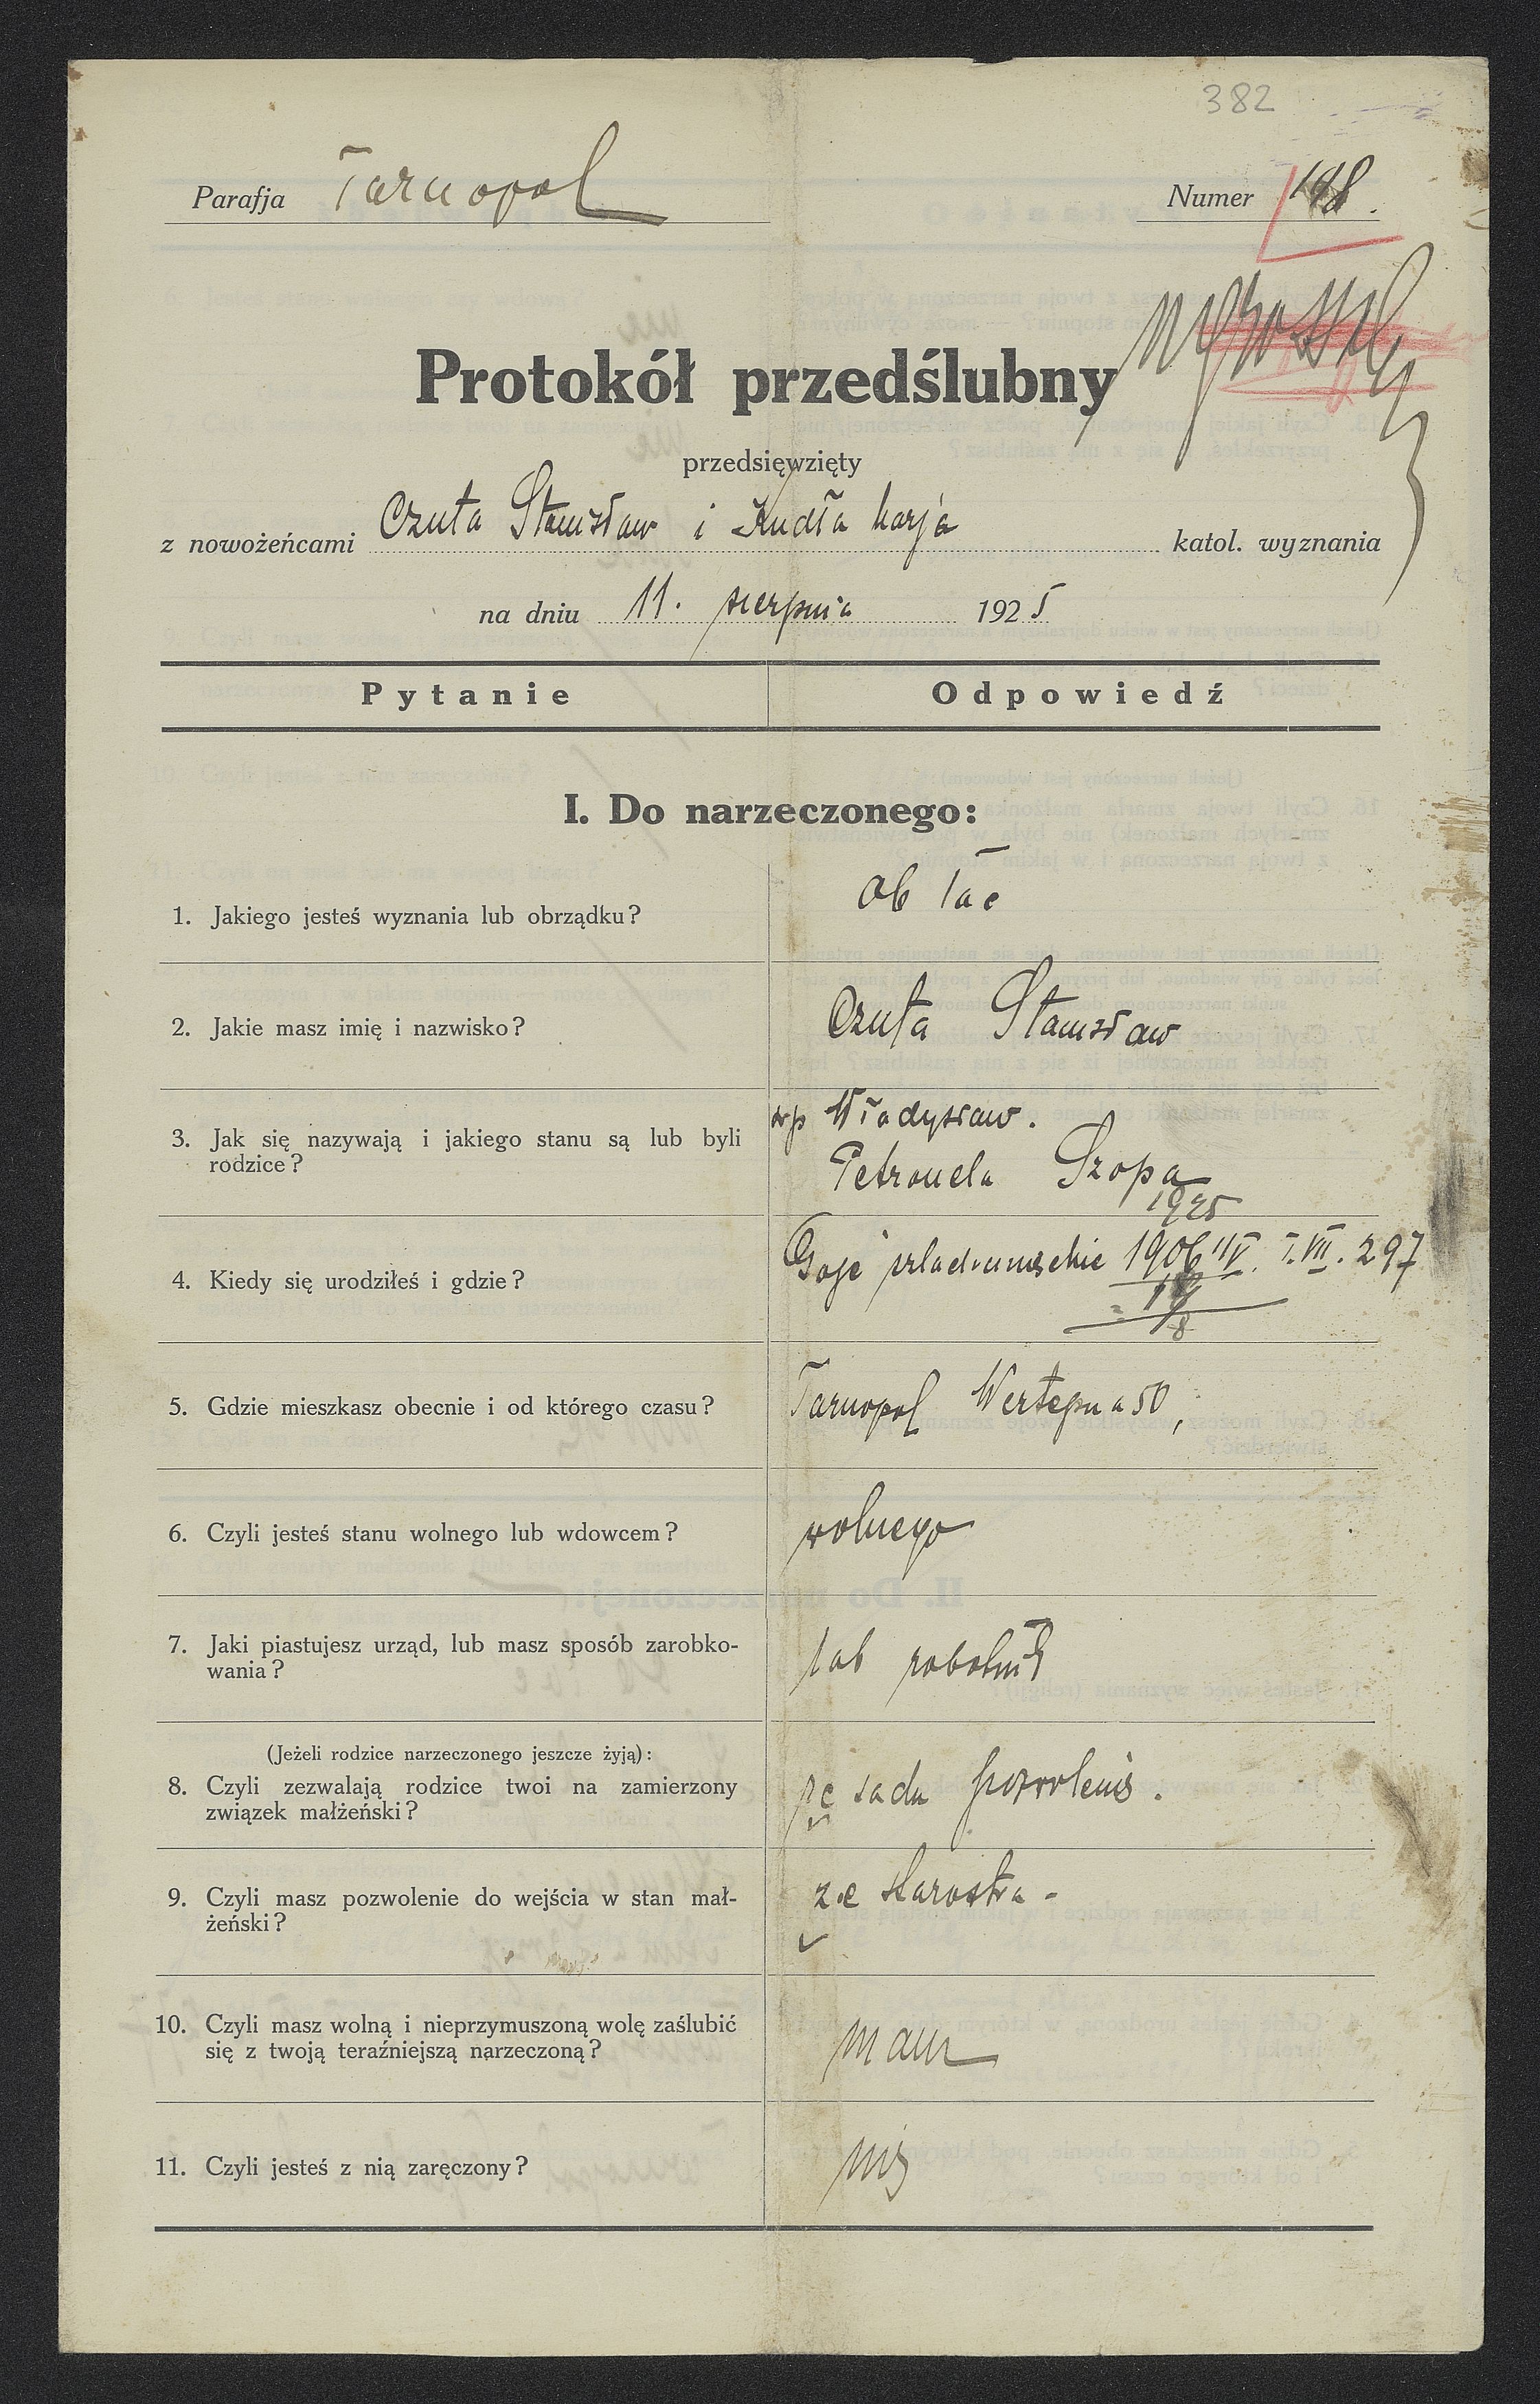 382
Parafja Tarnopol
Numer 148.
Protokół przedślubny
przedsięwzięty
z nowożeńcami Czuta Stanisław i Kudła Marja katol. wyznania
na dniu 11. sierpnia 1925
Pytanie Odpowiedź
I. Do narzeczonego:
1. Jakiego jesteś wyznania lub obrządku? ob łac
2. Jakie masz imię i nazwisko? Czuta Stanisław
3. Jak się nazywają i jakiego stanu są lub byli
rodzice?
śp Władysław.
Petronela Szopa
4. Kiedy się urodziłeś i gdzie?
1925
Goje 1906 T. VII. 297
5. Gdzie mieszkasz obecnie i od którego czasu? Tarnopol Wertepna 50,
6. Czyli jesteś stanu wolnego lub wdowcem? wolnego
7. Jaki piastujesz urząd, lub masz sposób zarobko-
wania?
robotnik
(Jeżeli rodzice narzeczonego jeszcze żyją):
8. Czyli zezwalają rodzice twoi na zamierzony
związek małżeński?
sadu
9. Czyli masz pozwolenie do wejścia w stan mał-
żeński?
ze Starostwa -
10. Czyli masz wolną i nieprzymuszoną wolę zaślubić
się z twoją teraźniejszą narzeczoną?
mam
11. Czyli jesteś z nią zaręczony?